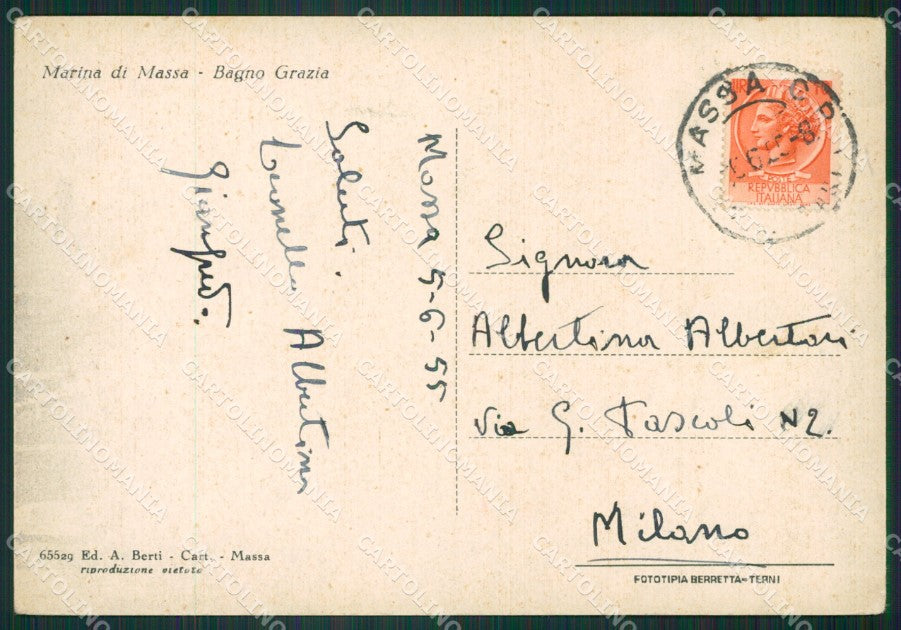 Marina di Massa - Bagno Grazia
Massa 5-6-55
Saluti.
Albertini
Signora
Albertina Albertari
Via G. Pascoli N2.
Milano
MASSA C.P.
POSTE
REPVBBLICA
ITALIANA
65529 Ed. A. Berti - Cart. - Massa
riproduzione vietata
FOTOTIPIA BERRETTA-TERNI
CARTOLINOMANIA